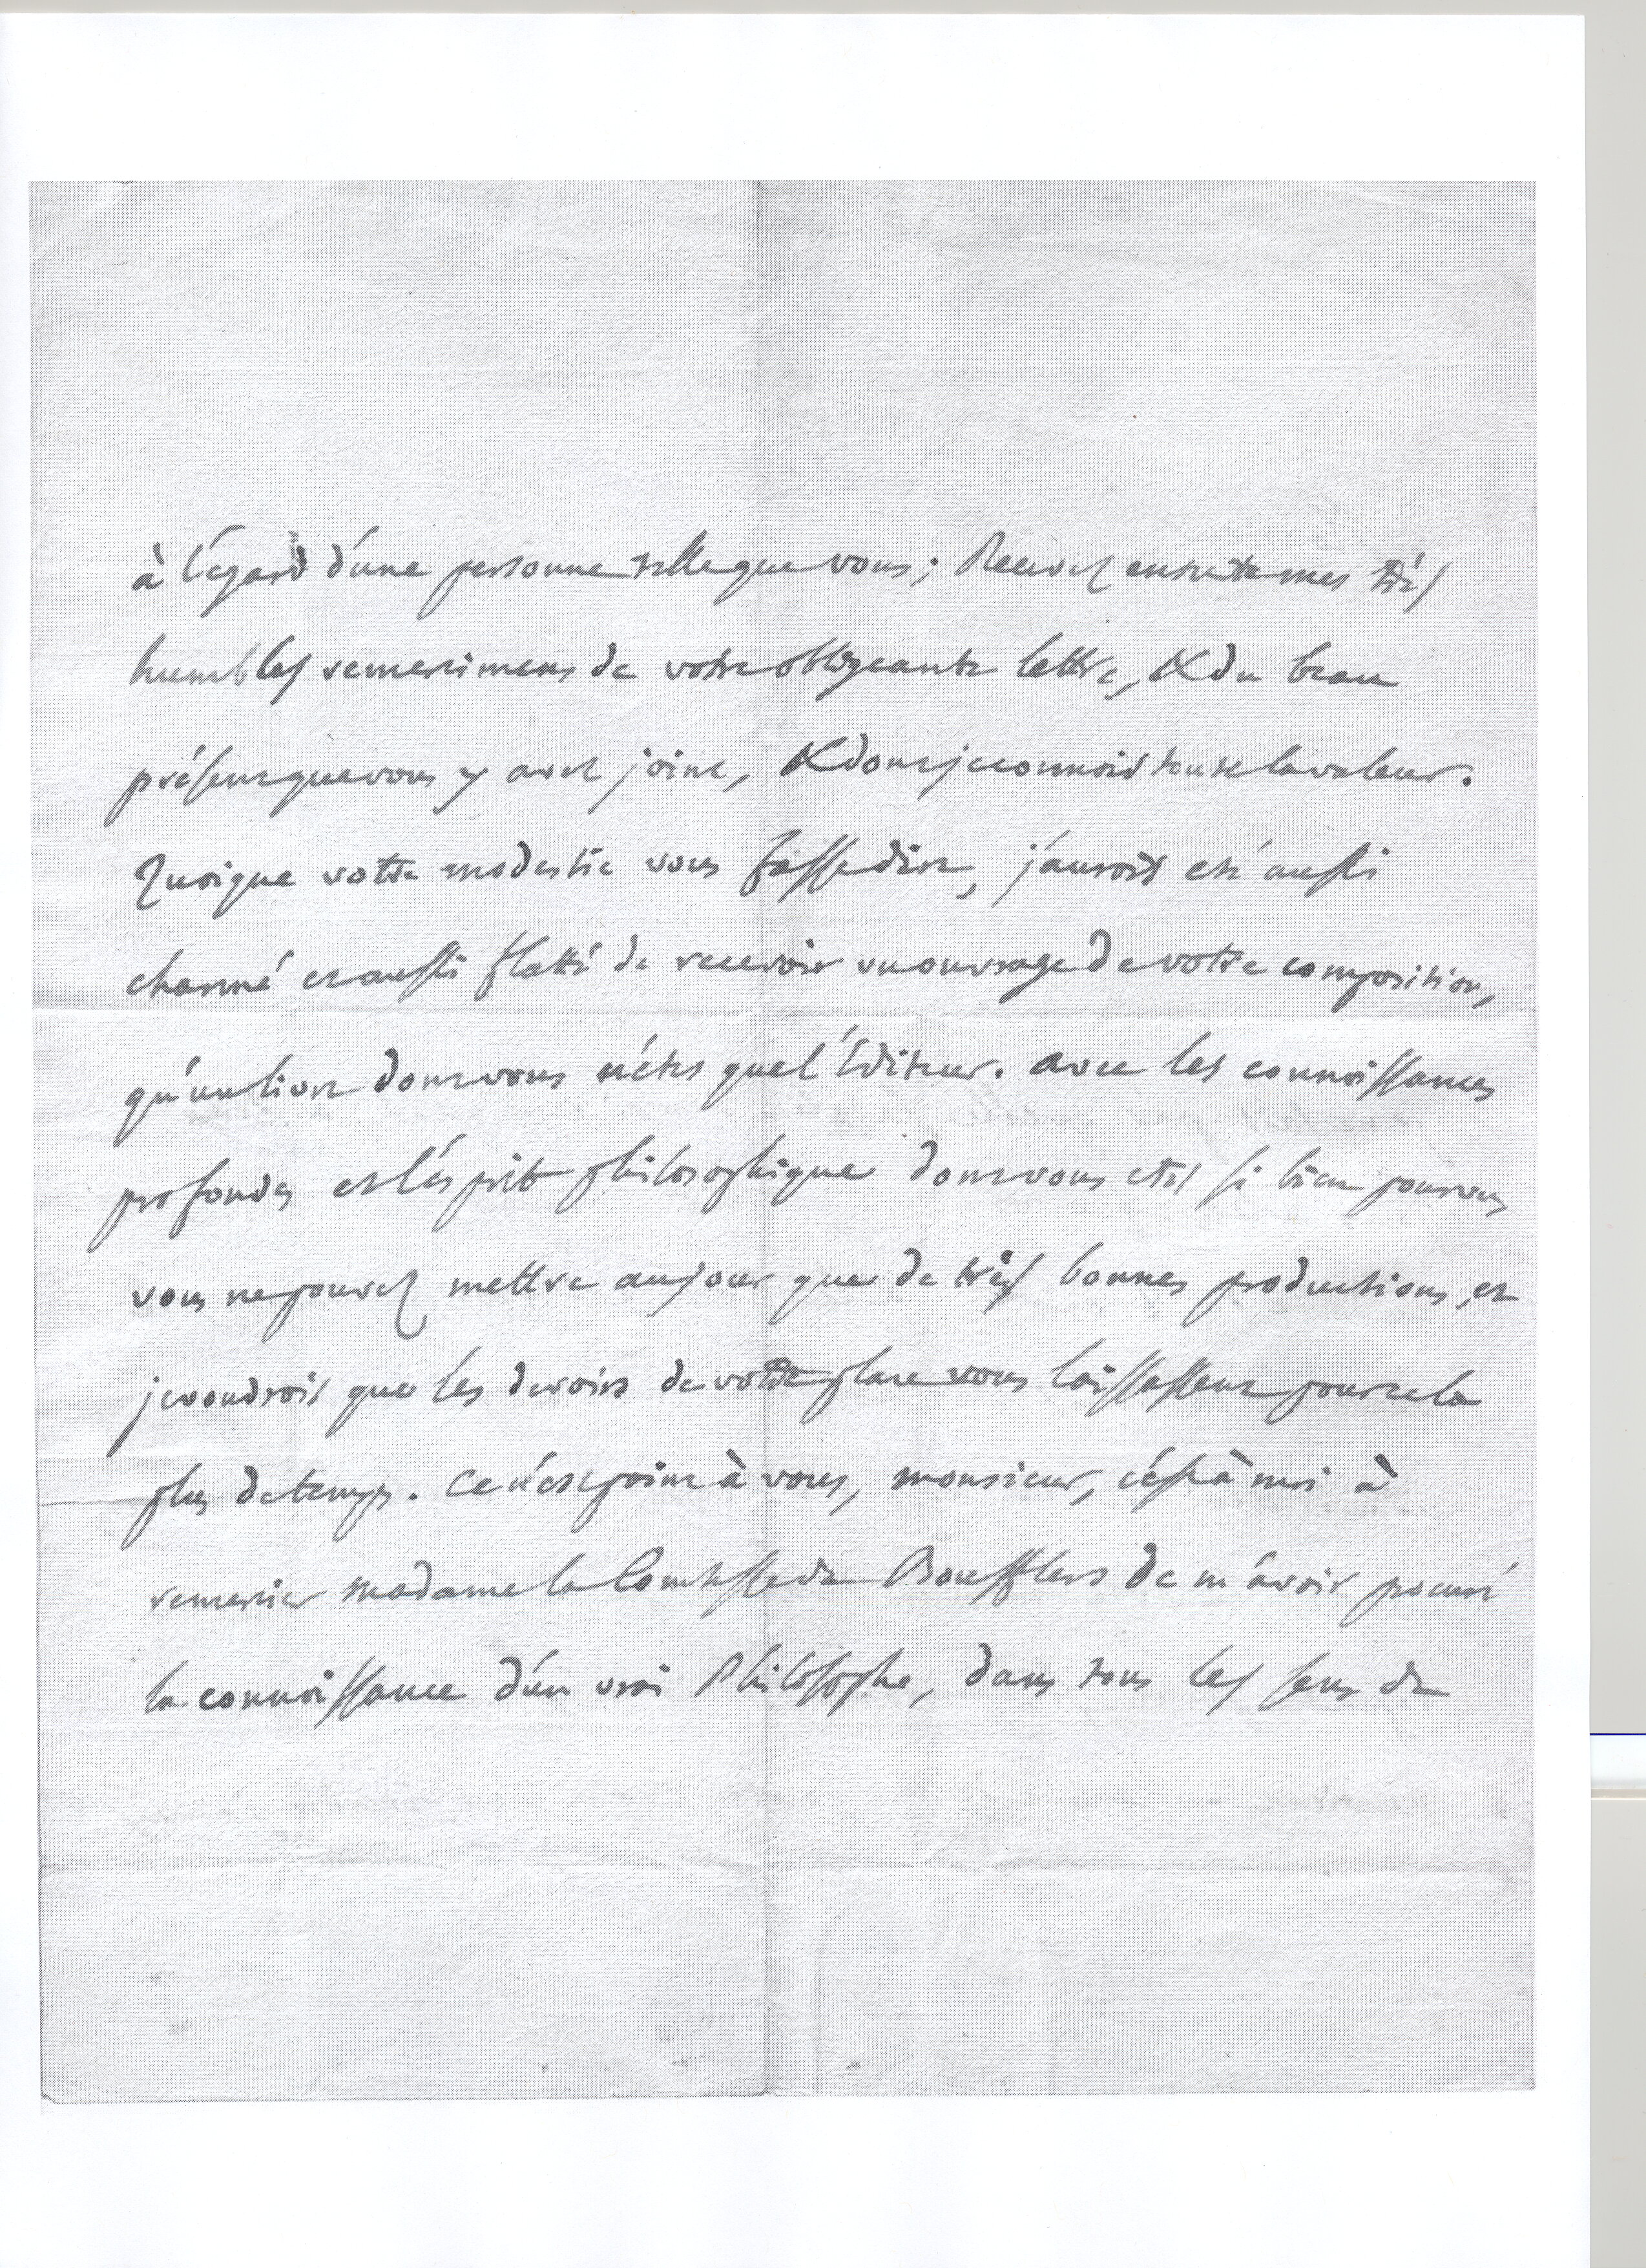 à l'égard d'une personne telle que vous; Recevez ensuite mes très
humbles remercimens de votre obligeante lettre, & du beau
présent que vous y avez joint, & dont je connois toute la valeur.
Quoique votre modestie vous fasse dire, j'aurois eté aussi
charmé et aussi flatté de recevoir un ouvrage de votre composition,
qu'un livre dont vous n'étes que l'Editeur. avec les connoissances
profondes et l'ésprit philosophique dont vous etes si bien pourvu,
vous ne pouvez mettre au jour que de très bonnes productions, et
je voudrois que les devoirs de votre place vous laissassent pour cela
plus de temps. Ce n'est point à vous, monsieur, c'ést à moi à
remercier madame la Comtesse de Boufflers de m'avoir procuré
la connoissance d'un vrai Philosophe, dans tous les sens de